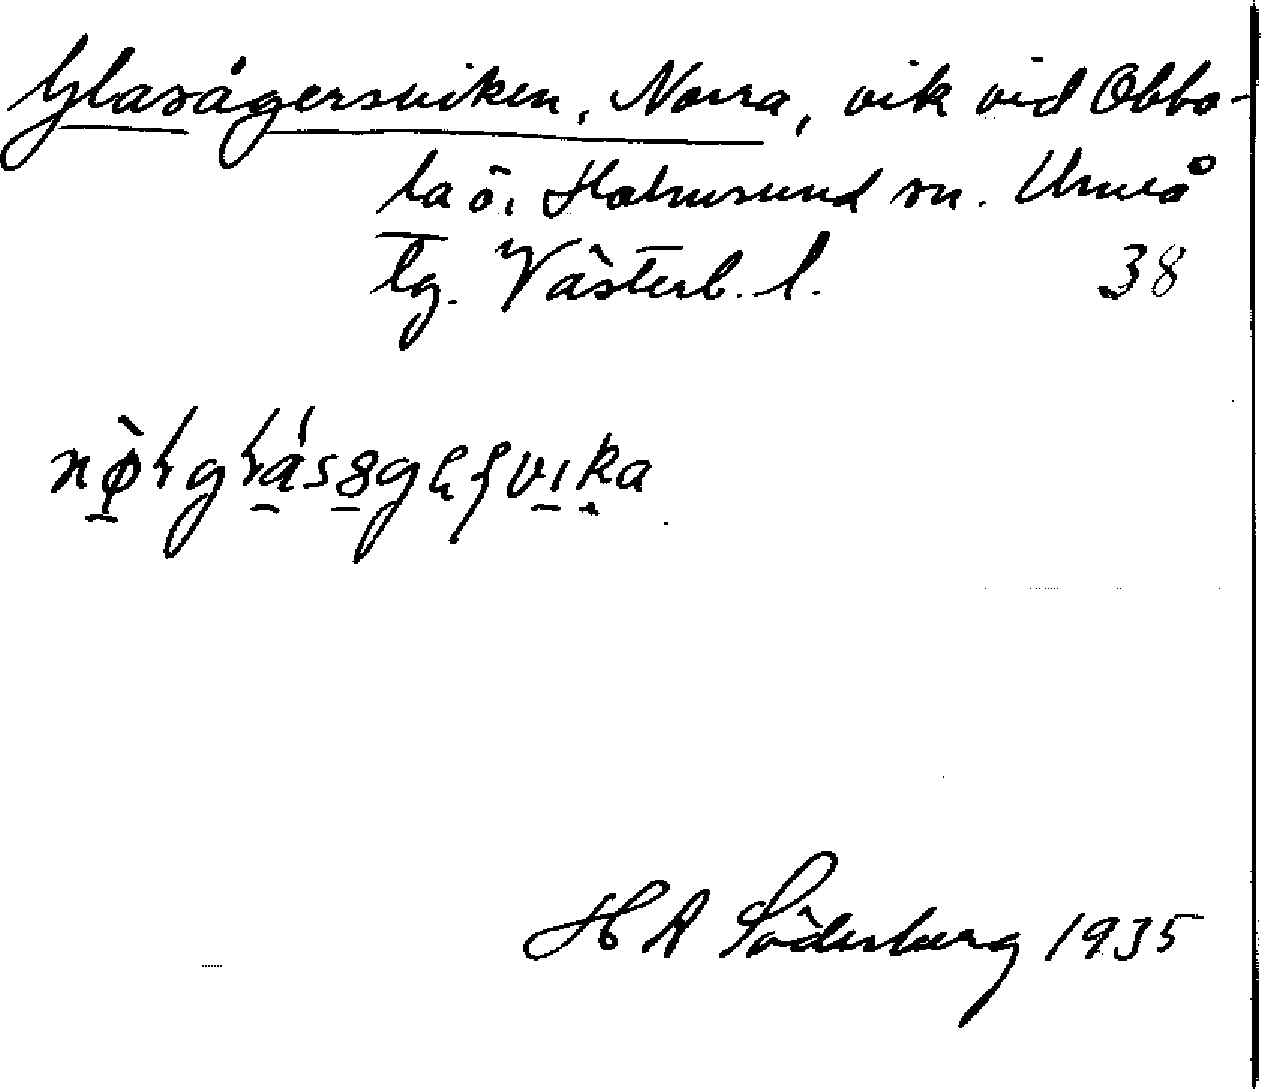 Glasågersviken, Norra, vik vid Obbo-
la ö, Holmsund sn. Umeå
tg. Västerb. l. 38
H A Söderberg 1935